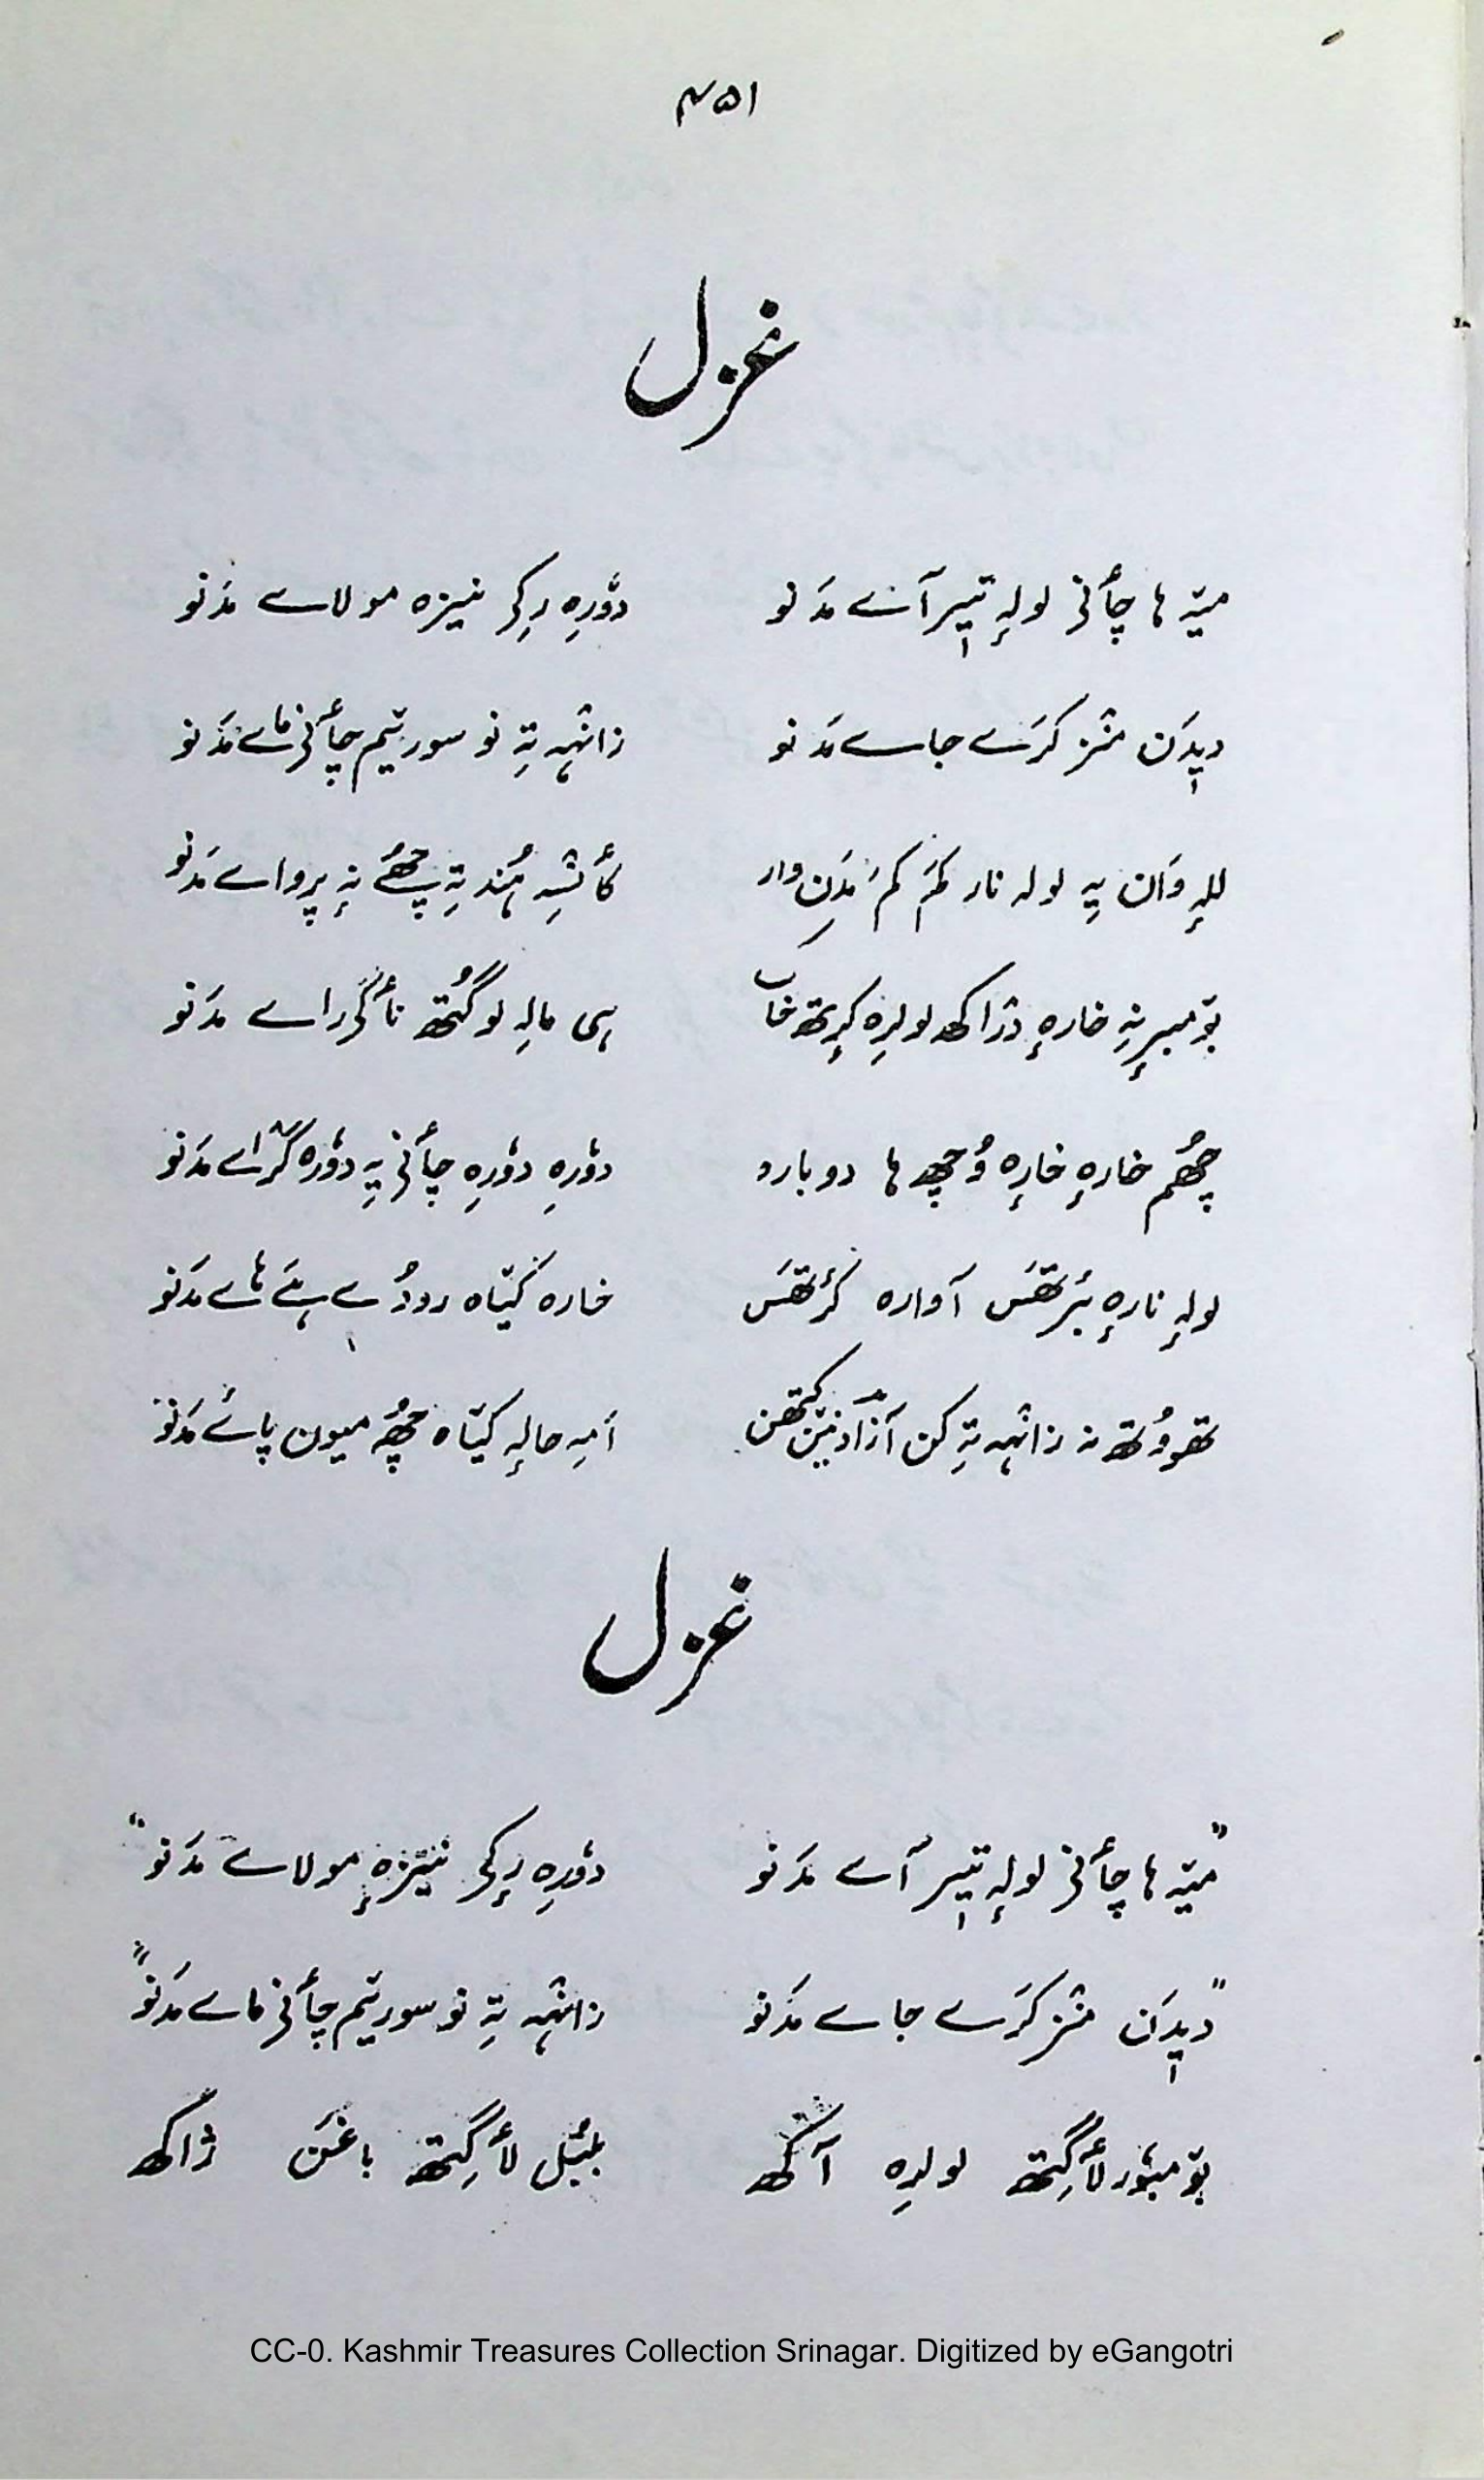 ۴۵۱
غزل
میتہ ہا چأنی لولہٕ تیٖر آے مَدَنو دوٗرِہ رِکی نیزہ مولاے مَدَنو
دیٖدَن منٛز کرَے جاے مَدَنو زانٛہہ تہِ نو سوریٚم چأنی ماے مَدَنو
للہٕ وَان یہِ لولہ نار کَم کَم مَدَنِ وار کأنٛسہِ ہُند تہِ چھُے نہٕ پرواے مَدَنو
بومبرنہِ خارہٕ دژاکھ لولرِہ کٕرتھ خاب ہی مالہِ لوگُتھ ناگی راے مَدَنو
چھُم خارہٕ خارِہ وُچھ ہا دوبارہ دوٗرِہ دوٗرِہ چأنی یہِ دوٗرہ گراے مَدَنو
لولہٕ نارہٕ بٔرتھَس آوارہ کٔرتھَس خارہ کیٚاہ رودُے ہَے ہاے مَدَنو
تھوٚوُتھ نہ زانٛہہ تہِ کن آزادنیٚن کتھن أمہِ حالہٕ کیٚاہ چھُہ میون پاے مَدَنو
غزل
"میتہ ہا چأنی لولہٕ تیٖر آے مَدَنو دوٗرِہ رِکی نیٚزہٕ مولاے مَدَنو"
"دیٖدَن منٛز کرَے جاے مَدَنو زانٛہہ تہِ نو سوریٚم چأنی ماے مَدَنو"
بومبوٗر لأگِتھ لولرِہ آکھ بلبُل لأگِتھ باغَن ژاکھ
CC-0. Kashmir Treasures Collection Srinagar. Digitized by eGangotri